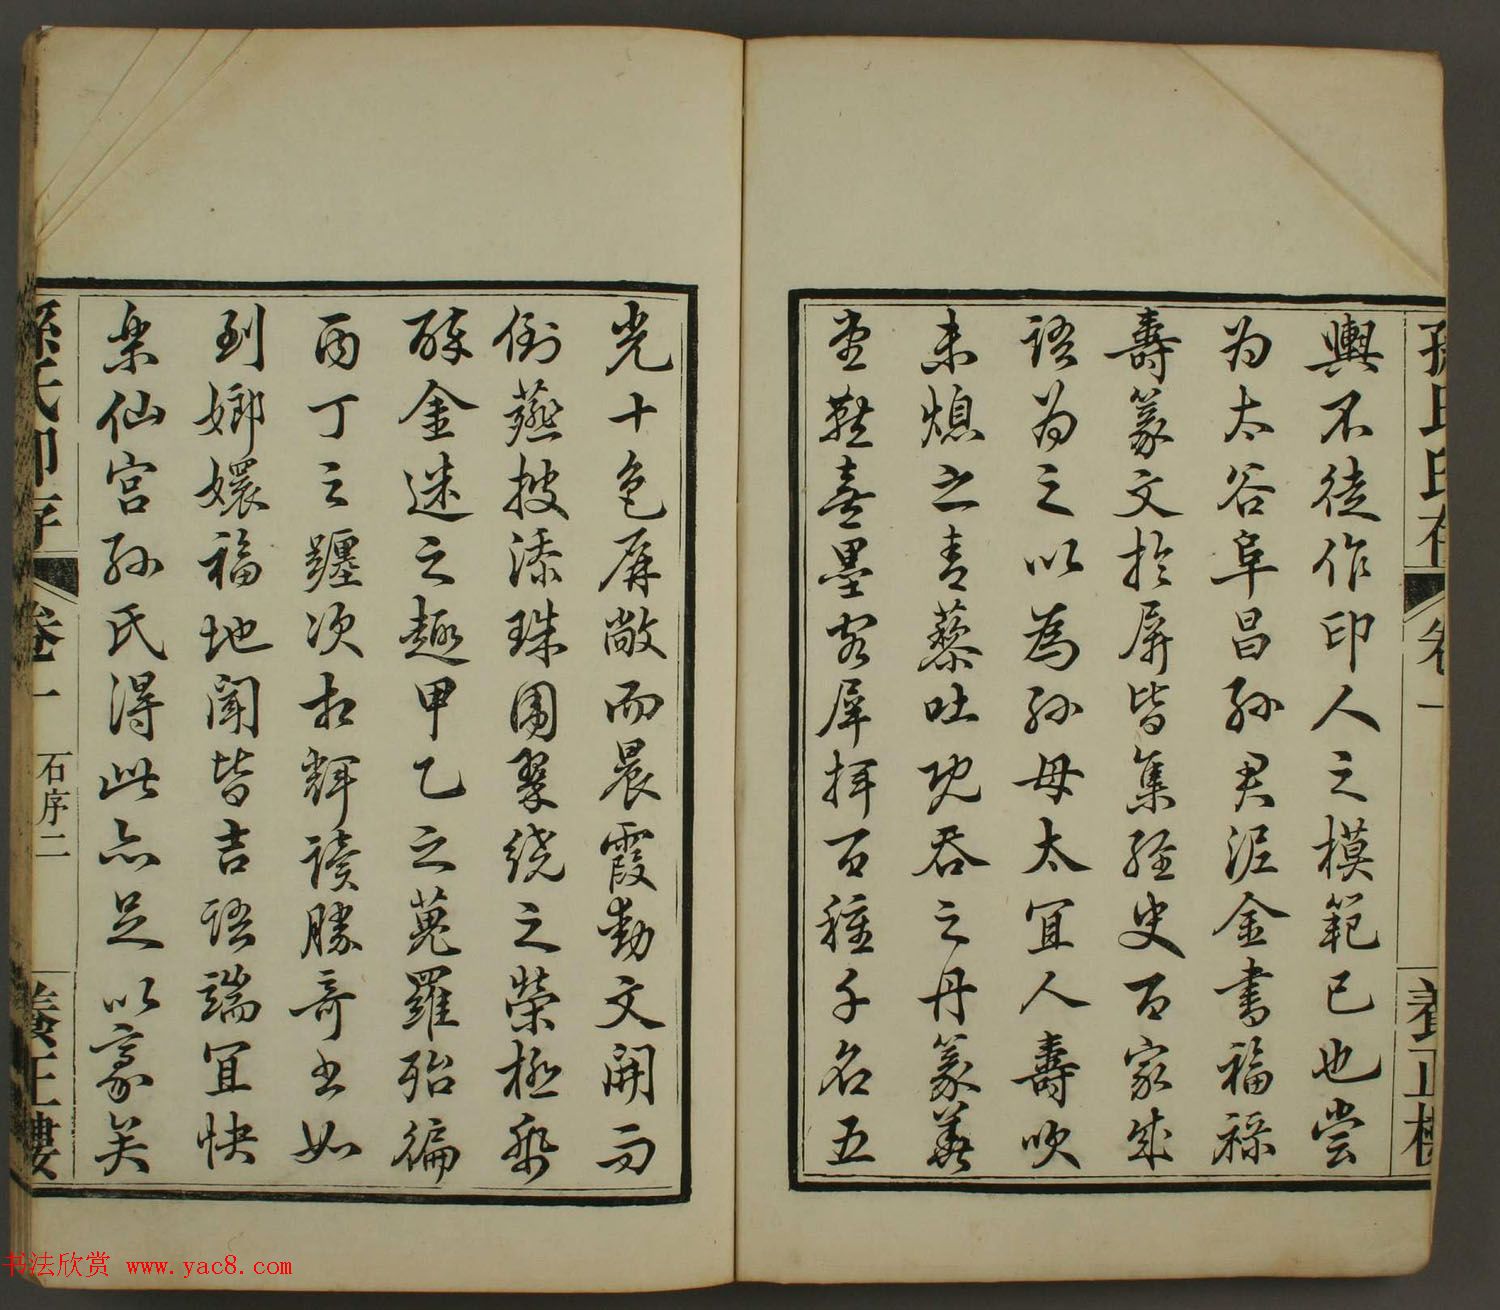 孫氏印存
卷一
養正樓
輿不徒作印人之模範已也嘗
为太谷阜昌孙君泥金書福祿
壽篆文於屏皆集經史百家成
語为之以為孙母太宜人壽吹
未熄之青藜吐 吞之丹篆
墨客 揮百種千名五
光十色屏敞而晨霞動文開而
倒薤披添珠圍翠繞之榮極
醉金迷之趣甲乙之蒐羅殆徧
丙丁之躔次相輝讀勝奇书如
到嫏嬛福地聞皆吉語端宜快
樂仙宫孙氏得此亦足以豪矣
孫氏印存
卷一
石序二
養正樓
书法欣赏 www.yac8.com